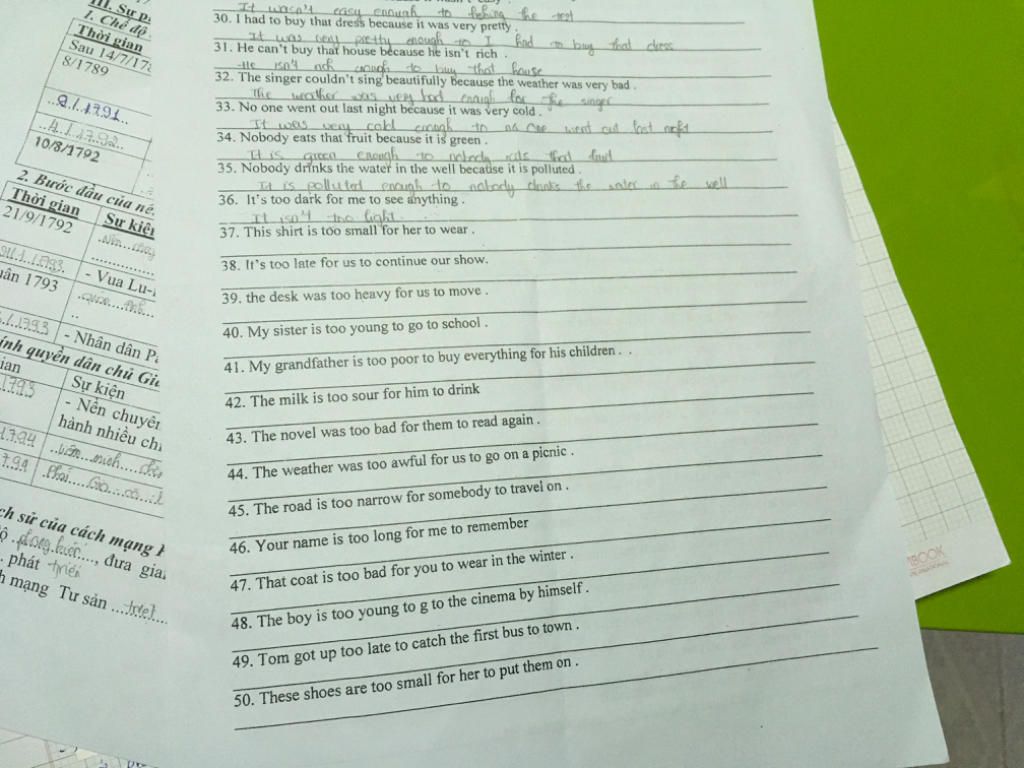 III. Sự
1. Chế độ
Thời gian
Sau 14/7/17
8/1789
..2.1.1791..
..4.1.1792..
10/8/1792
2. Bước đầu của
Thời gian
Sự kiện
21/9/1792
1793
- Vua Lu-
1793
- Nhân dân
quyền dân chủ
Sự kiện
1793
- Nền
hành nhiều
sử của cách mạng
đưa
phát triển
mạng Tư sản
It wasn't easy enough to the test
30. I had to buy that dress because it was very pretty .
It was very pretty enough to I had to buy that dress
31. He can't buy that house because he isn't rich .
He isn't rich enough to buy that house
32. The singer couldn't sing beautifully because the weather was very bad .
The weather was very bad enough for the singer
33. No one went out last night because it was very cold .
It was very cold enough to no one went out last night
34. Nobody eats that fruit because it is green .
It is green enough to nobody eats that fruit
35. Nobody drinks the water in the well because it is polluted .
It is polluted enough to nobody drinks the water in the well
36. It's too dark for me to see anything .
It isn't too light.
37. This shirt is too small for her to wear .
38. It's too late for us to continue our show.
39. the desk was too heavy for us to move .
40. My sister is too young to go to school .
41. My grandfather is too poor to buy everything for his children . .
42. The milk is too sour for him to drink
43. The novel was too bad for them to read again .
44. The weather was too awful for us to go on a picnic .
45. The road is too narrow for somebody to travel on .
46. Your name is too long for me to remember
47. That coat is too bad for you to wear in the winter .
48. The boy is too young to g to the cinema by himself .
49. Tom got up too late to catch the first bus to town .
50. These shoes are too small for her to put them on .